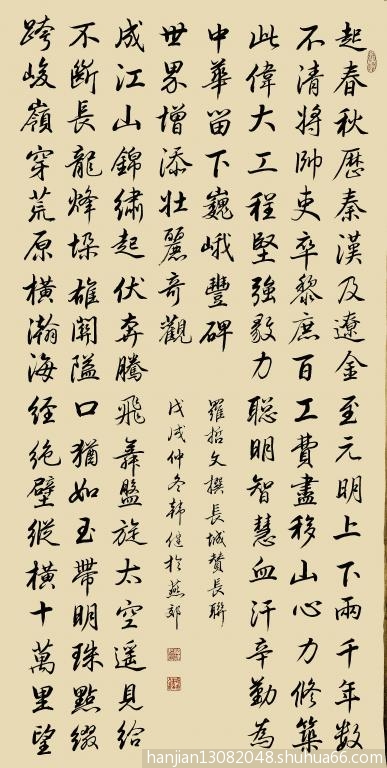 起春秋歷秦漢及遼金至元明上下兩千年數
不清將帥吏卒黎庶百工費盡移山心力修築
此偉大工程堅強毅力聰明智慧血汗辛勤為
中華留下巍峨豐碑
跨峻嶺穿荒原橫瀚海經絕壁縱橫十萬里望
不斷長龍烽垛雄關隘口猶如玉帶明珠點綴
成江山錦繡起伏奔騰飛舞盤旋太空遙見給
世界增添壯麗奇觀
羅哲文撰長城贊長聯
戊戌仲冬韓健於燕郊
hanjian13082048.shuhua66.com